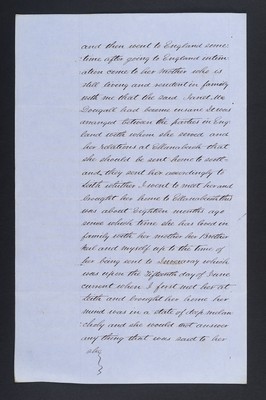 and then went to England some
time after going to England intim
ation came to her Mother who is
still living and resident in family
with me that the said Janet Mc
Dougall had become insane It was
arranged between the parties in Eng
land with whom she served and
her relations at that
she should be sent home to
and they sent her accordingly to
Leith whither I went to meet her and
brought her home to this
was about Eighteen months ago
since which time she has lived in
family with her mother her Brother
and myself up to the time of
her being sent to which
was upon the Fifteenth day of June
current when I first met her at
Leith and brought her home her
mind was in a state of deep melan
choly and she would not answer
any thing that was said to her